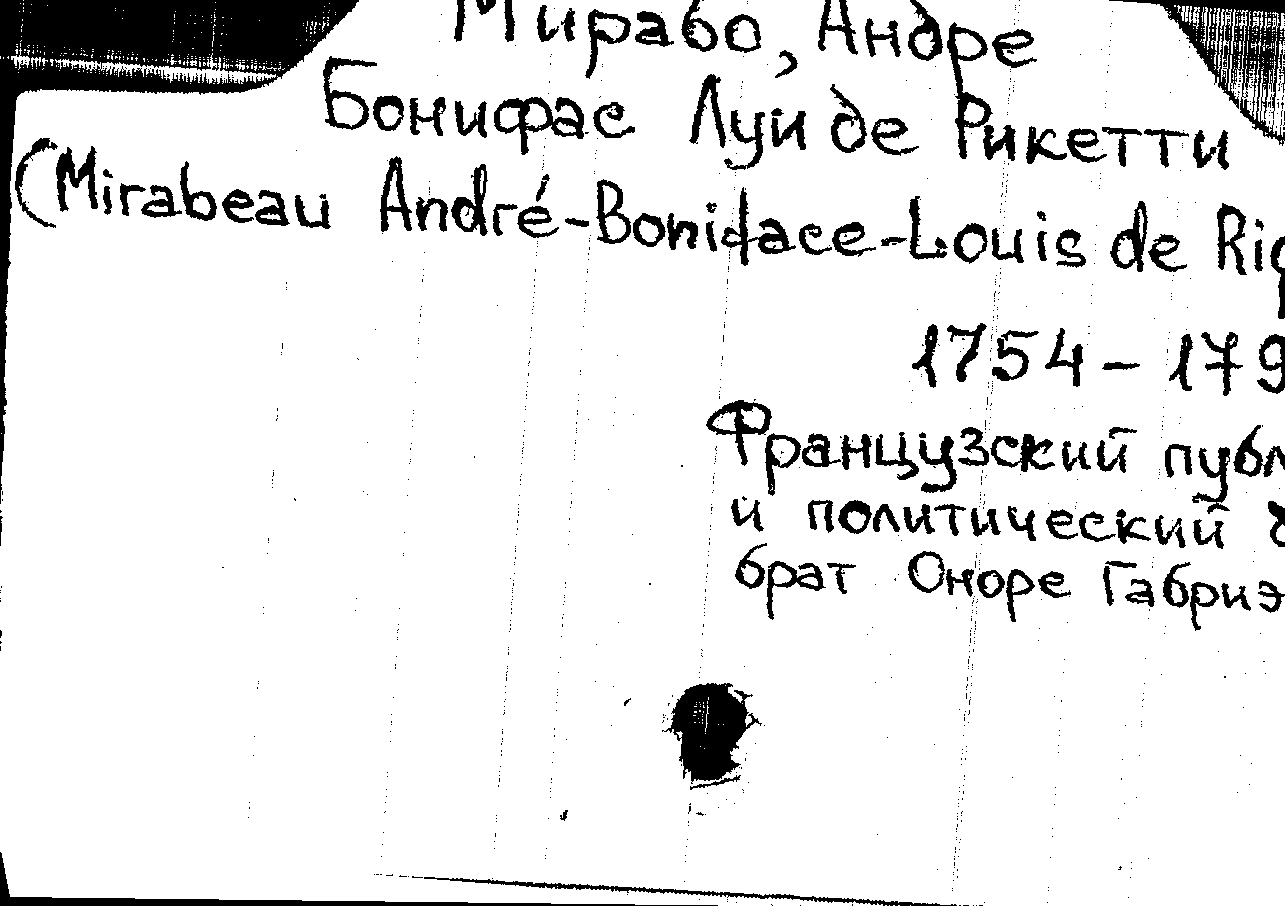 Мирабо, Андре
Бонифас Луи де Рикетти
(Mirabeau André-Boniface-Louis de Riq
1754 – 179
Французский публ
и политический
брат Оноре Габриэ